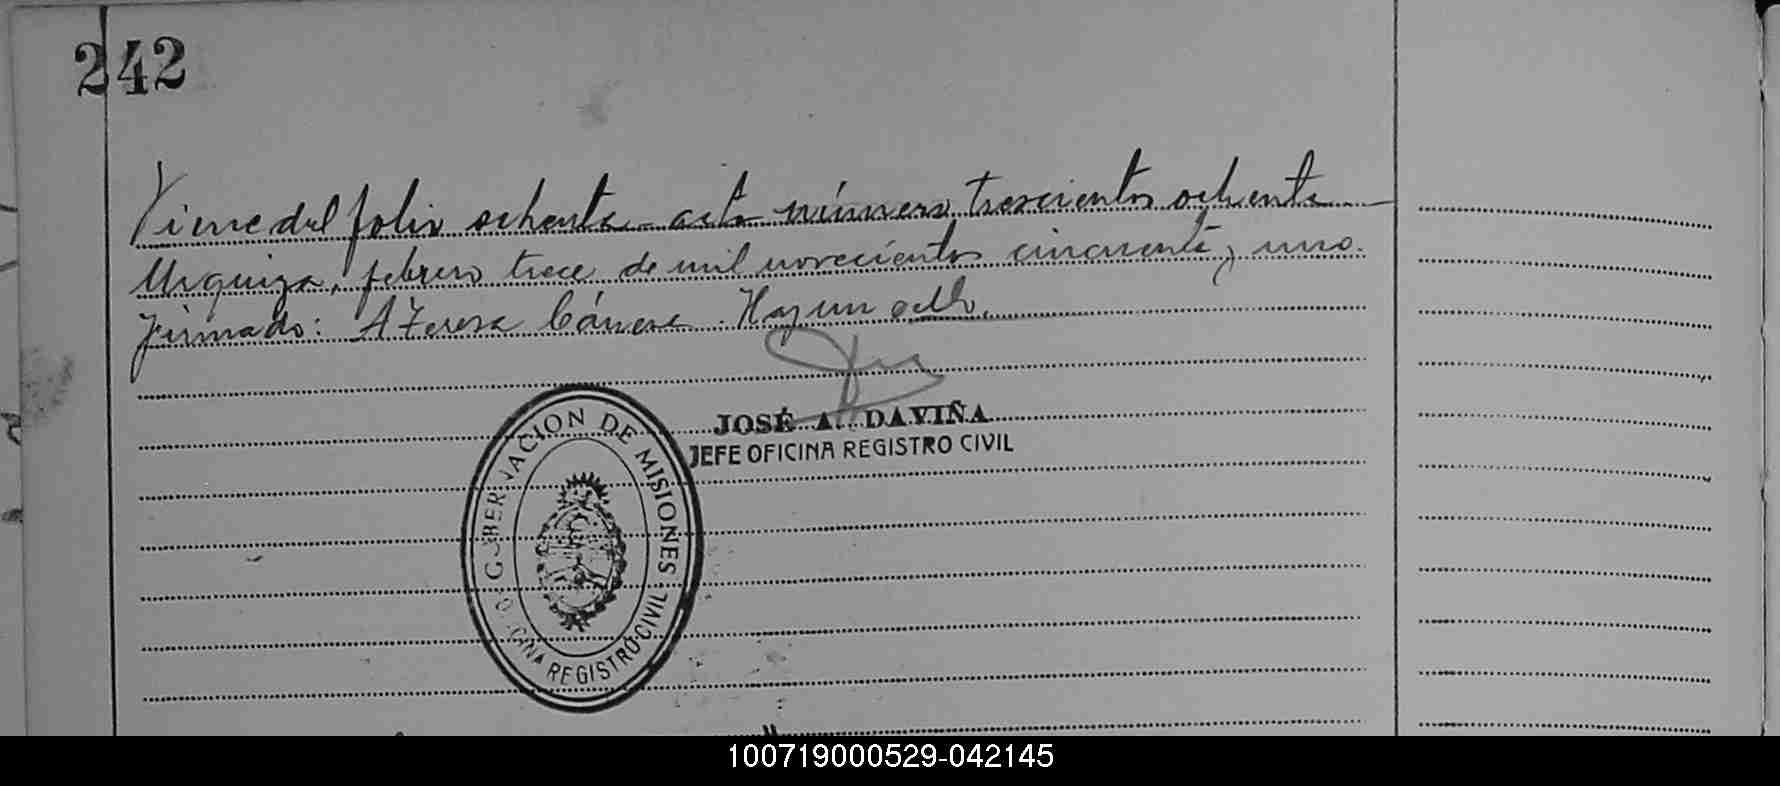 242
Viene del folio ochenta - acta número trescientos ochenta -
Urquiza, febrero trece de mil novecientos cincuenta y uno.
Firmado: A Teresa Cánese. Hay un sello.
JOSÉ A. DAVIÑA
JEFE OFICINA REGISTRO CIVIL
GOBERNACION DE MISIONES
OFICINA REGISTRO CIVIL
100719000529-042145